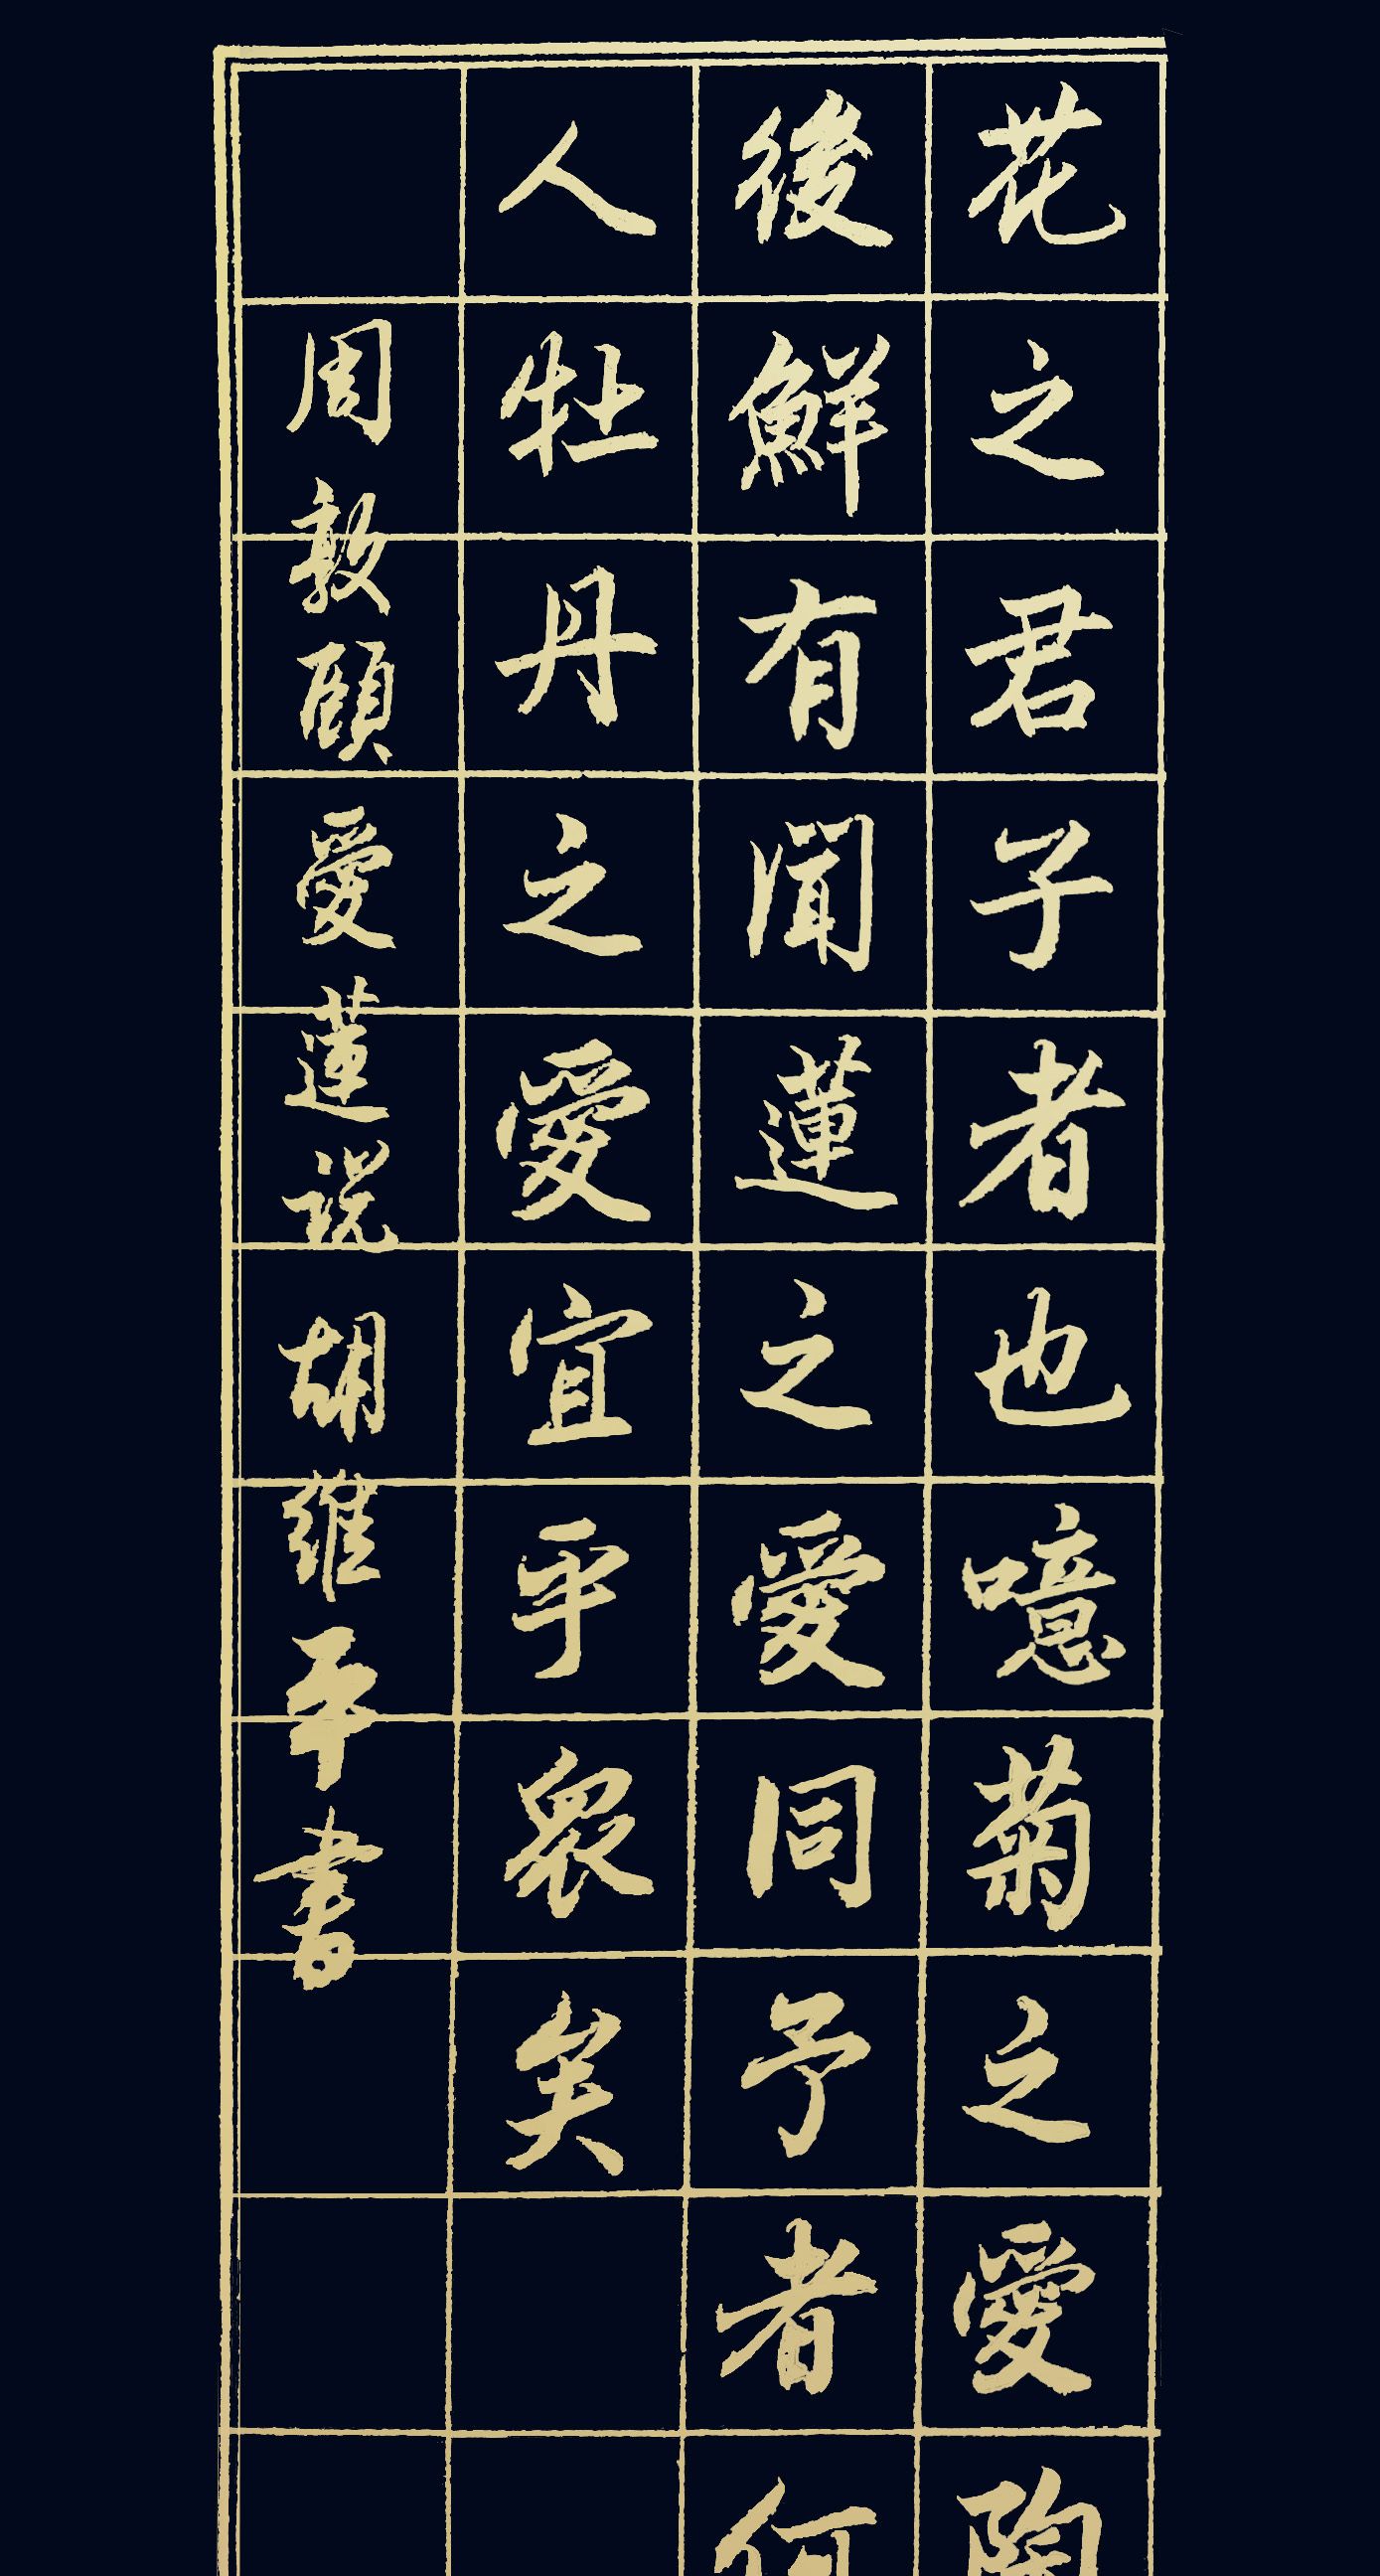 花之君子者也噫菊之愛陶
後鮮有聞蓮之愛同予者何
人牡丹之愛宜乎衆矣
周敦頤愛蓮説胡維平書